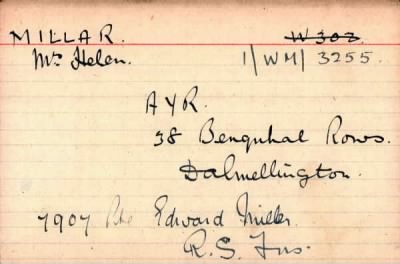 MILLAR. W 308
Mrs Helen. 1/WM/3255.
AYR.
38 Benquhal Rows.
Dalmellington.
7907 Pte Edward Miller
R.S. Fus.